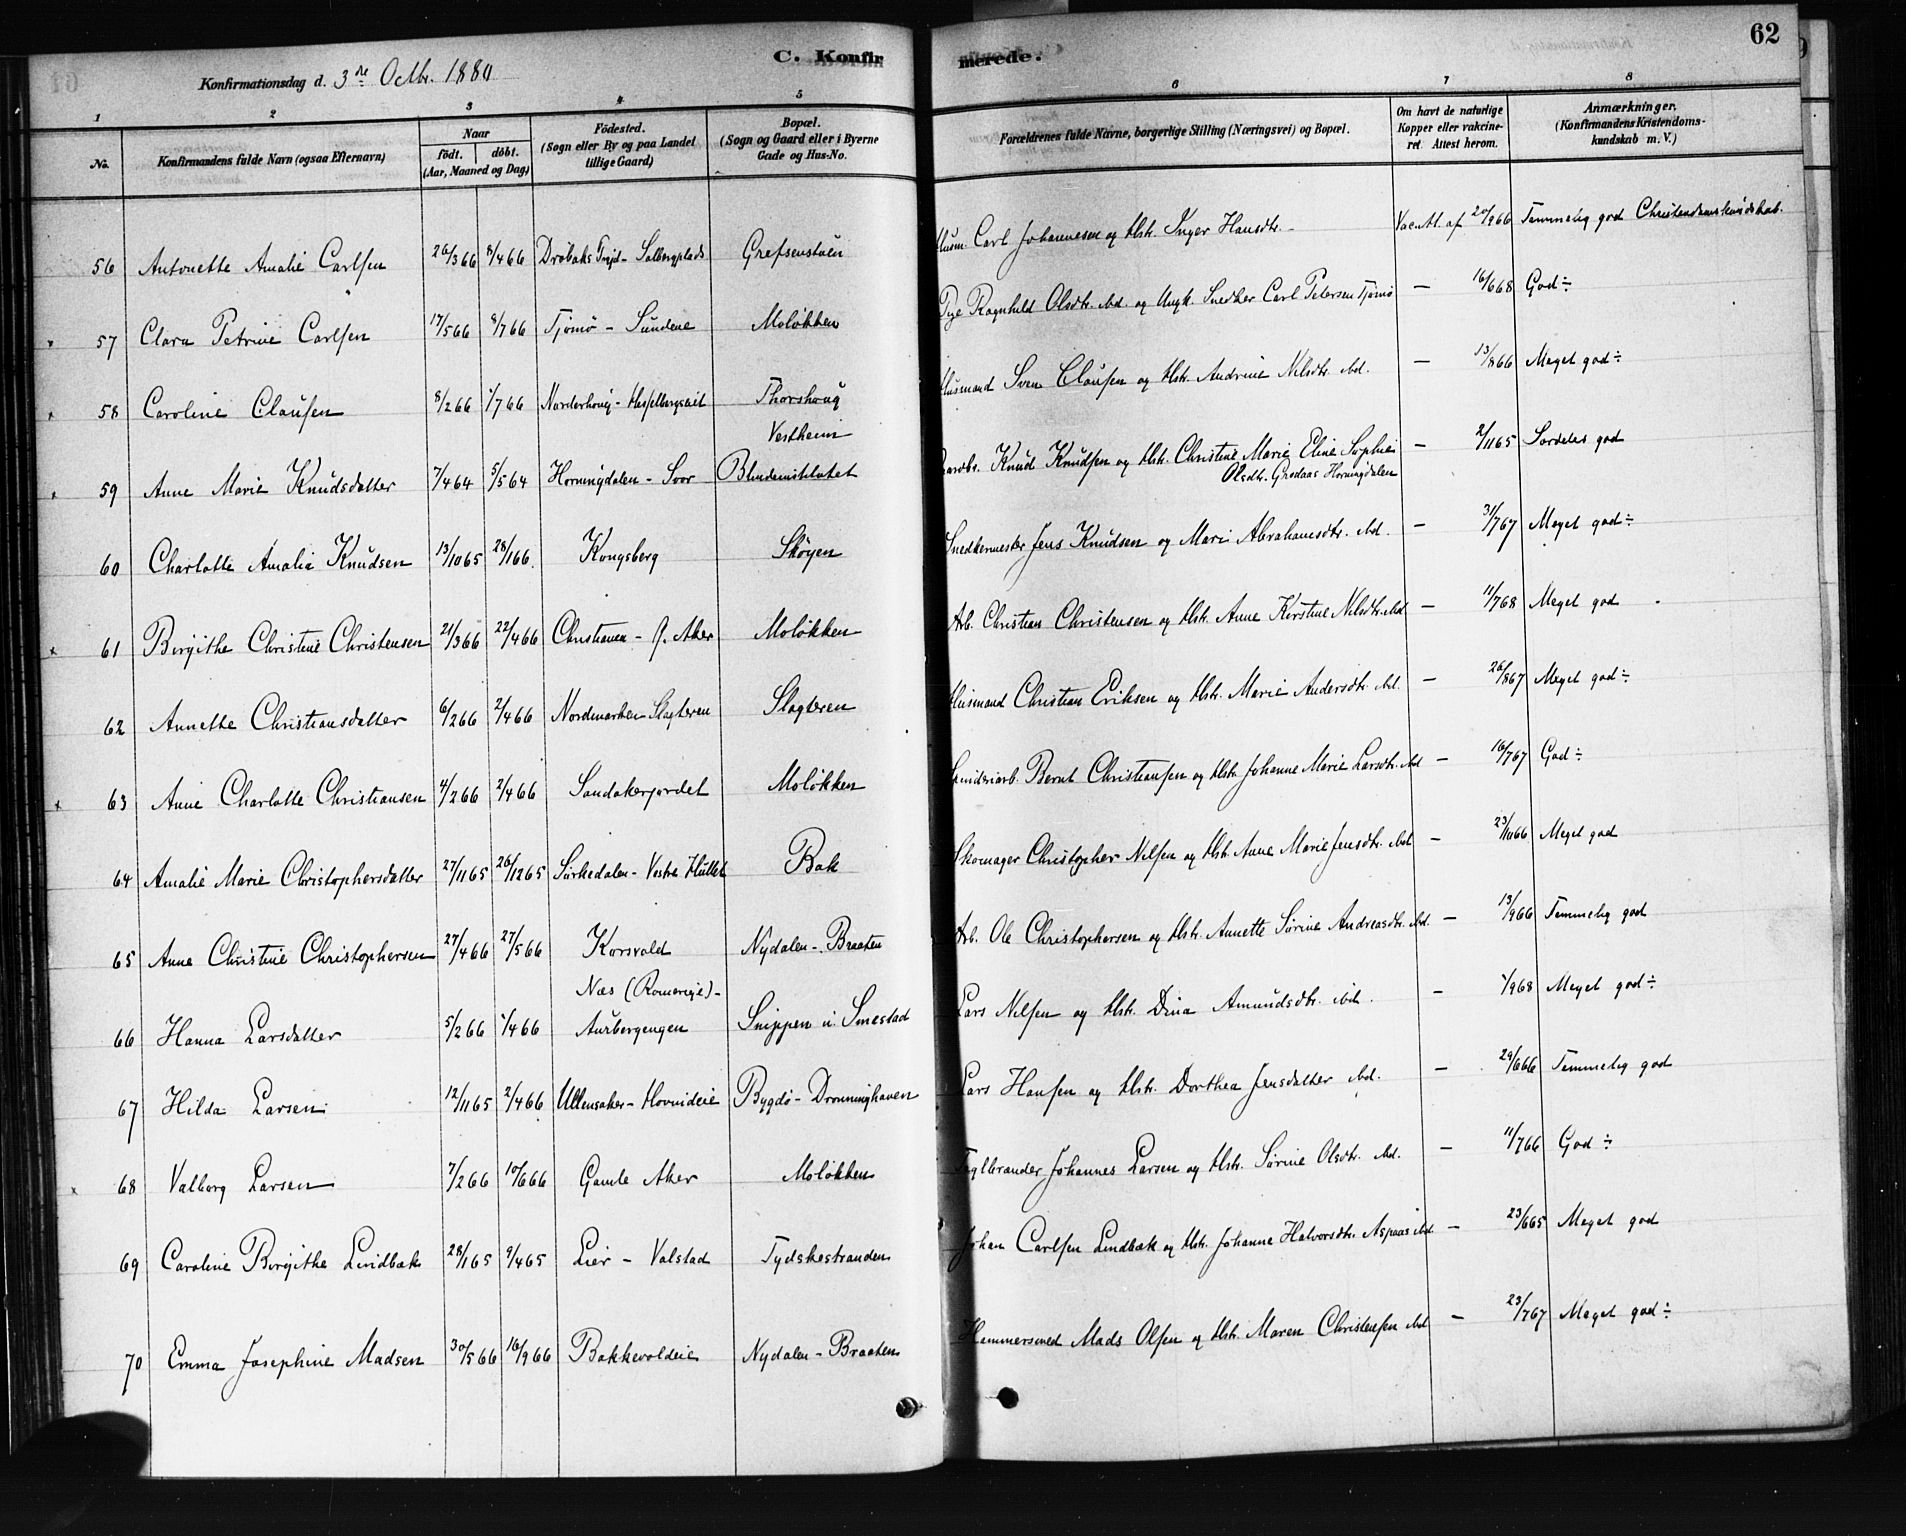 62
C. Konfirmerede.
Konfirmationsdag d. 3die Octbr. 1880
1 2 3 4 5 6 7 8
No. Konfirmandens fulde Navn (ogsaa Efternavn) Naar födt. döbt. (Aar, Maaned og Dag) Födested. (Sogn eller By og paa Landet tillige Gaard) Bopæl. (Sogn og Gaard eller i Byerne Gade og Hus-No. Forældrenes fulde Navne, borgerlige Stilling (Næringsvei) og Bopæl. Om havt de naturlige Kopper eller vakcineret. Attest herom. Anmærkninger. (Konfirmandens Kristendomskundskab m. V.)
56 Antonette Amalie Carlsen 26/3 66 8/4 66 Dröbaks - Solbergplads Grefsenstuen Husm. Carl Johannesen og Hstr. Inger Hansdtr. Vac. Att. af 20/9 66 Temmelig god Christendomskundskab.
57 Clara Petrine Carlsen 17/5 66 8/7 66 Tjømø - Sundene Moløkken Pige Ragnhild Olsdtr. ibd. og Ungk. Snedker Carl Petersen Tjømø — 16/6 68 God ÷
58 Caroline Clausen 8/2 66 1/7 66 Norderhoug - Hesselbergseiet Thorshoug Husmand Sven Clausen og Hstr. Andrine Nilsdtr. ibd. — 13/8 66 Meget god ÷
59 Anne Marie Knudsdatter 7/4 64 5/5 64 Horningdalen - Soor Vestheim Blindeinstitutet Gaardbr. Knud Knudsen og Hstr. Christine Marie Eline Sophie Olsdtr. Grodaas Horningdalen — 2/11 65 Særdeles god
60 Charlotte Amalie Knudsen 13/10 65 28/1 66 Kongsberg Skøyen Snedkermester Jens Knudsen og Mari Abrahamsdtr. ibd. — 31/7 67 Meget god ÷
61 Birgithe Christine Christensen 21/3 66 22/4 66 Christiania - G. Aker Moløkken Arb. Christian Christensen og Hstr. Anne Kirstine Nilsdtr. ibd. — 11/7 68 Meget god
62 Annette Christiansdatter 6/2 66 2/4 66 Nordmarken Slagteren Slagteren Husmand Christian Eriksen og Hstr. Marie Andersdtr. ibd. — 26/8 67 Meget god ÷
63 Anne Charlotte Christiansen 4/2 66 2/4 66 Sandakerjordet Moløkken Bernt Christiansen og Hstr. Johanne Marie Larsdtr. ibd — 16/7 67 God ÷
64 Amalie Marie Christophersdatter 27/11 65 26/12 65 Sørkedalen - Vestre Hullet Bak Skomager Christopher Nilsen og Hstr. Anne Marie Jensdtr. ibd — 23/10 66 Meget god
65 Anne Christine Christophersen 27/4 66 27/5 66 Korsvold Nydalen - Braaten Arb. Ole Christophersen og Hstr. Annette Sørine Andreasdtr. ibd. — 13/9 66 Temmelig god
66 Hanna Larsdatter 5/2 66 1/4 66 Næs (Romerige) - Aurbergengen Snippen u. Smestad Lars Nilsen og Hstr. Dina Amundsdtr. ibd. — 1/9 68 Meget god ÷
67 Hilda Larsen 12/11 65 2/4 66 Ullensaker - Hovindeie Bygdø - Dronninghaven Lars Hansen og Hstr. Dorthea Jensdatter ibd. — 29/6 66 Temmelig god
68 Valborg Larsen 7/2 66 10/6 66 Gamle Aker Moløkken Teglbrænder Johannes Larsen og Hstr. Sørine Olsdtr. ibd. — 11/7 66 God ÷
69 Caroline Birgithe Lindbæk 28/1 65 9/4 65 Lier - Valstad Tydskestranden Johan Carlsen Lindbæk og Hstr. Johanne Halvorsdtr. Aspaas ibd. — 23/6 65 Meget god
70 Emma Josephine Madsen 30/5 66 16/9 66 Bakkevoldeie Nydalen - Braaten Hammersmed Mads Olsen og Hstr. Maren Christensen ibd — 23/7 67 Meget god ÷